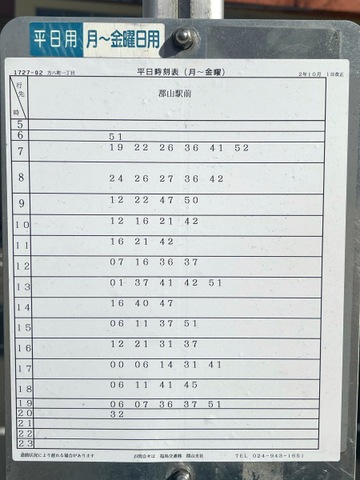 平日用 月～金曜日用
1727-02 方八町一丁目 平日時刻表(月～金曜) 2年10月 1日改正
行先 時 郡山駅前
5
6 51
7 19 22 26 36 41 52
8 24 26 27 36 42
9 12 22 47 50
10 12 16 21 42
11 16 21 42
12 07 16 36 37
13 01 37 41 42 51
14 16 40 47
15 06 11 37 51
16 12 21 31 37
17 00 06 14 31 41
18 06 11 41 45
19 06 07 36 37 51
20 32
21
22
23
道路状況により遅れる場合があります お問合せは 福島交通㈱ 郡山支社 TEL 024-943-1651